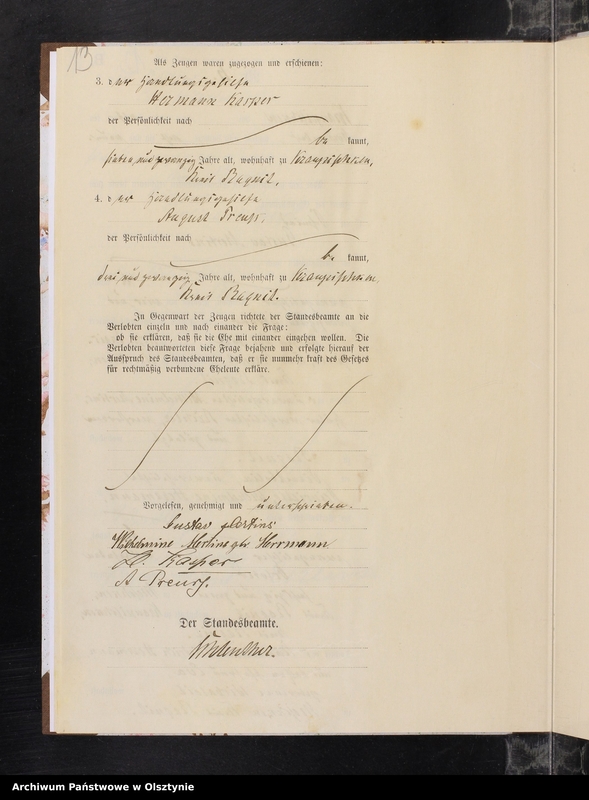 13
Als Zeugen waren zugezogen und erschienen:
3. der Handlungsgehilfe
Hermann Kasper
der Persönlichkeit nach
be kannt,
sieben und zwanzig Jahre alt, wohnhaft zu Kraupischken,
Kreis Ragnit.
4. der Handlungsgehilfe
August Preuß,
der Persönlichkeit nach
be kannt,
drei und zwanzig Jahre alt, wohnhaft zu Kraupischken,
Kreis Ragnit.
In Gegenwart der Zeugen richtete der Standesbeamte an die
Verlobten einzeln und nach einander die Frage:
ob sie erklären, daß sie die Ehe mit einander eingehen wollen. Die
Verlobten beantworteten diese Frage bejahend und erfolgte hierauf der
Ausspruch des Standesbeamten, daß er sie nunmehr kraft des Gesetzes
für rechtmäßig verbundene Eheleute erkläre.
Vorgelesen, genehmigt und unterschrieben.
Gustav Mertins
Wilhelmine Mertins geb. Herrmann
H. Kasper
A Preuß.
Der Standesbeamte.
Archiwum Państwowe w Olsztynie